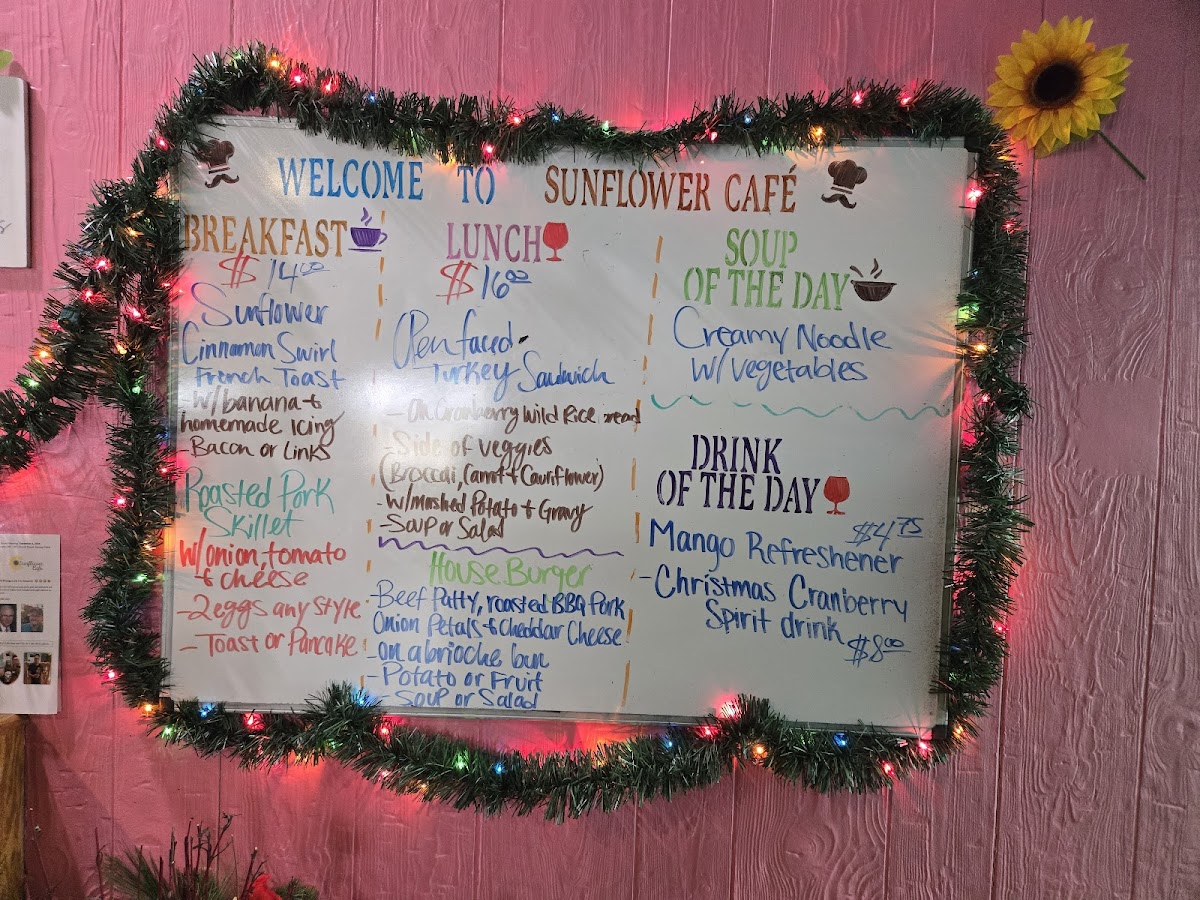 WELCOME TO SUNFLOWER CAFÉ
BREAKFAST
$14.00
Sunflower
Cinnamon Swirl
French Toast
- W/banana +
homemade Icing
- Bacon or Links
Roasted Pork
Skillet
W/onion, tomato
+ cheese
- 2 eggs any style
- Toast or Pancake
LUNCH
$16.00
Open faced
Turkey Sandwich
- On Cranberry Wild Rice read
- Side of veggies
(Broccoli, Carrot + Cauriflower)
- W/mashed Potato + Gravy
- Soup or Salad
House Burger
- Beef Patty, roasted BBQ Pork
Onion Petals + Cheddar Cheese
- on a brioche bun
- Potato or Fruit
- Soup or Salad
SOUP
OF THE DAY
Creamy Noodle
W/Vegetables
DRINK
OF THE DAY
$4.75
Mango Refreshener
- Christmas Cranberry
Spirit drink
$8.00